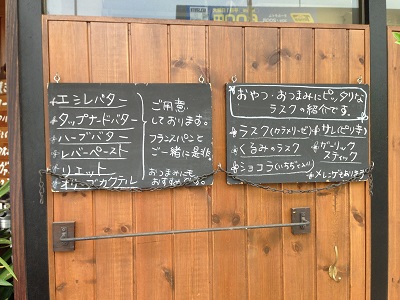 *エシレバター
*タップナードバター
*ハーブバター
*レバーペースト
*リエット
*オリーブカクテル
ご用意
しております。
フランスパンと
ご一緒に是非。
おつまみにも
おすすめです。
おやつ・おつまみにピッタリな
ラスクの紹介です。
*ラスク(カラメリーゼ)
*くるみのラスク
*ショコラ(いちぢく入り)
*サレ(ピリ辛)
*ガーリック
スティック
*メレンゲもあります